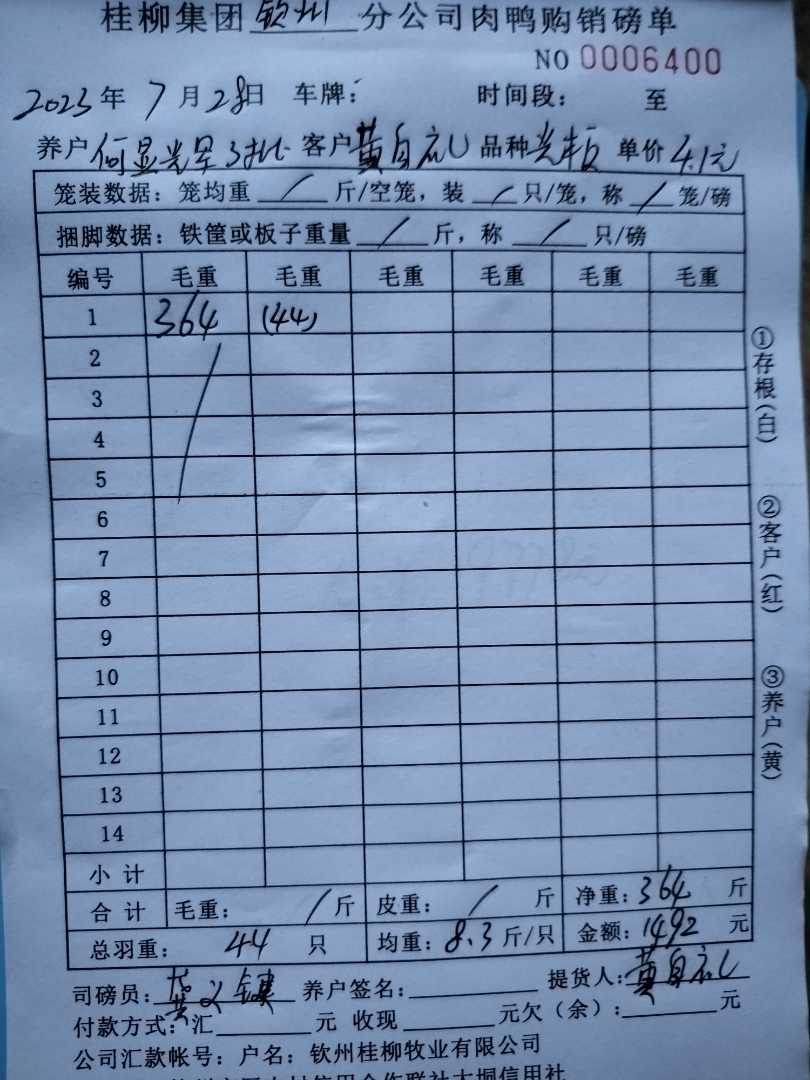 桂柳集团钦州分公司肉鸭购销磅单
NO 0006400
2023年7月28日 车牌: 时间段: 至
养户何显光旱3批 客户黄自礼 品种 单价4.1元
笼装数据:笼均重/斤/空笼,装/只/笼,称/笼/磅
捆脚数据:铁筐或板子重量/斤,称/只/磅
编号 毛重 毛重 毛重 毛重 毛重 毛重
1 364 (44)
2
3
4
5
6
7
8
9
10
11
12
13
14
小计
合计 毛重:/斤 皮重:/斤 净重:364斤
总羽重:44只 均重:8.3斤/只 金额:1492元
司磅员: 养户签名: 提货人:黄自礼
付款方式:汇 元 收现 元欠(余): 元
公司汇款帐号:户名:钦州桂柳牧业有限公司
①存根(白)
②客户(红)
③养户(黄)